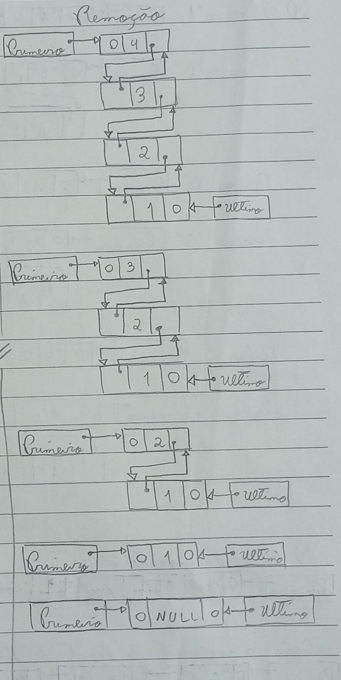 Remoção
Primeiro 0 4
3
2
1 0 Ultimo
Primeiro 0 3
2
1 0 Ultimo
Primeiro 0 2
1 0 Ultimo
Primeiro 0 1 0 Ultimo
Primeiro 0 NULL 0 Ultimo